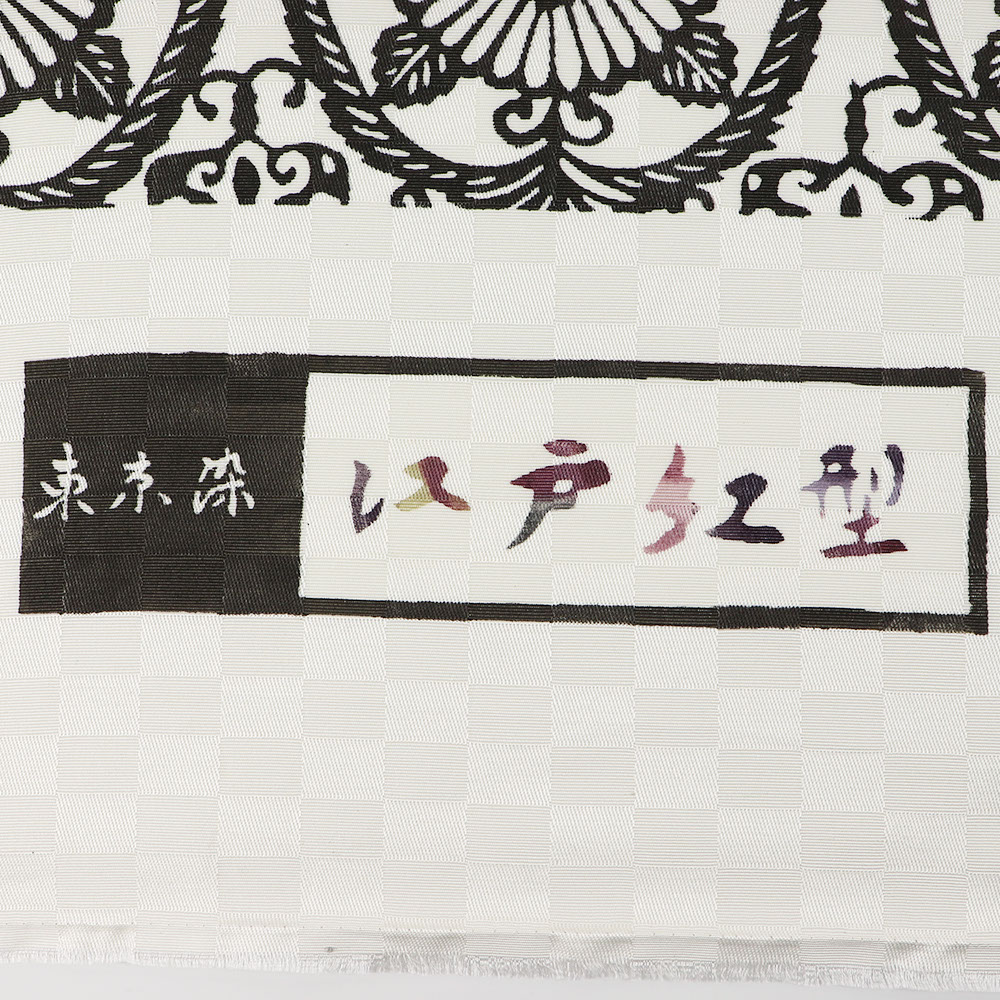 東京染 江戸紅型